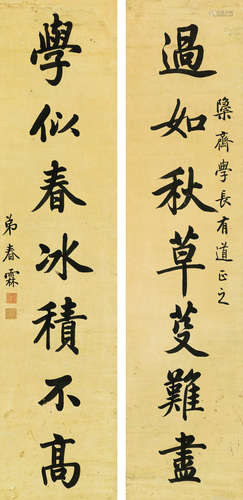 過如秋草芟難盡
學似春冰積不高
橤齋學長有道正之
弟春霖